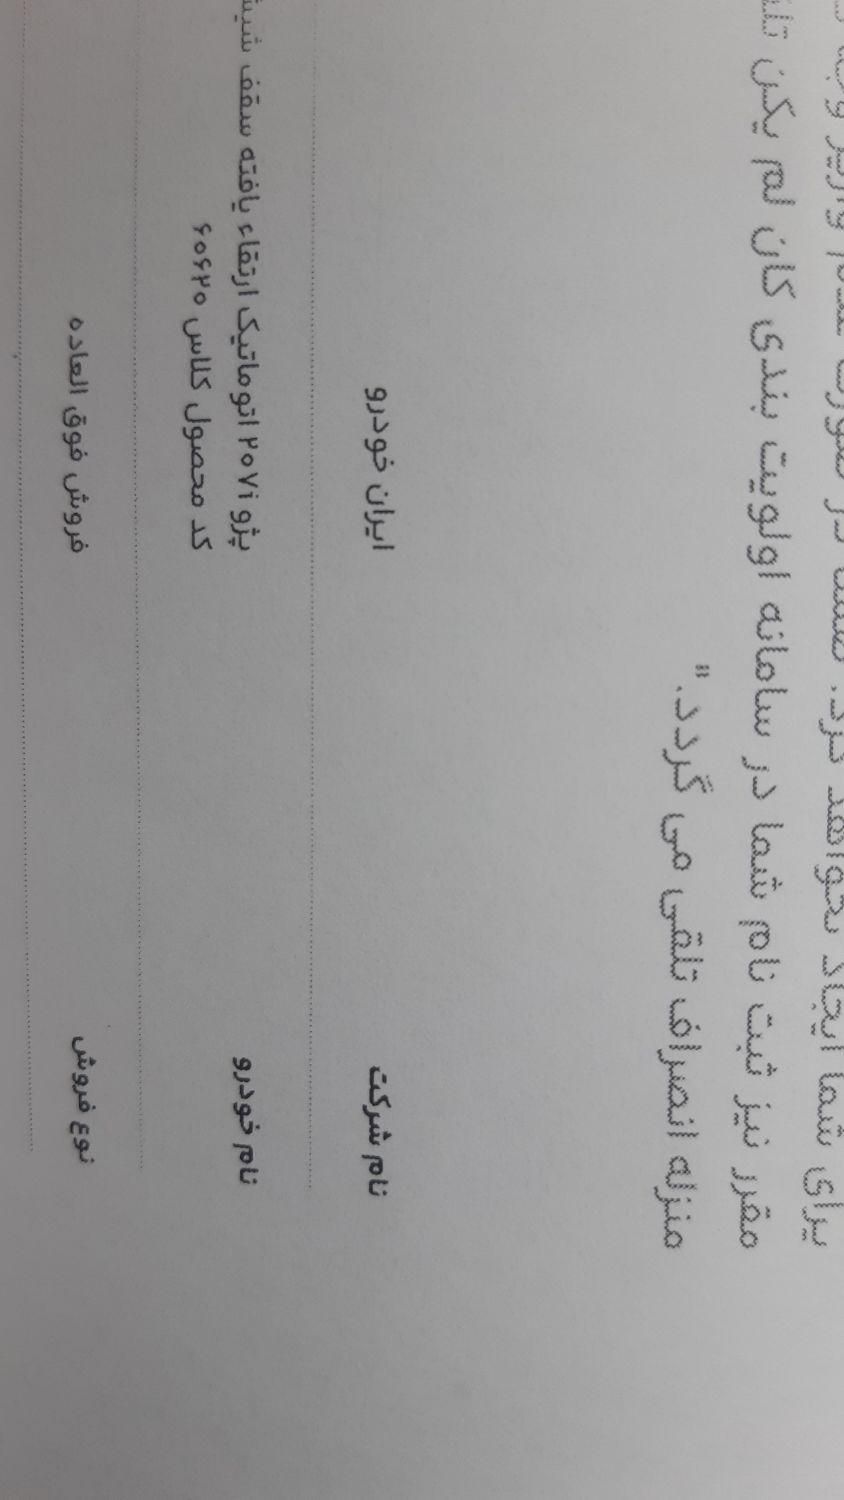 برای شما ایجاد نخواهد کرد. ضمناً در صورت عدم واریز وجه
مقرر نیز ثبت نام شما در سامانه اولویت بندی کان لم یکن
منزله انصراف تلقی می گردد."
نام شرکت ایران خودرو
نام خودرو پژو ۲۰۷i اتوماتیک ارتقاء یافته سقف
کد محصول کلاس ۶۰۶۲۰
نوع فروش فروش فوق العاده